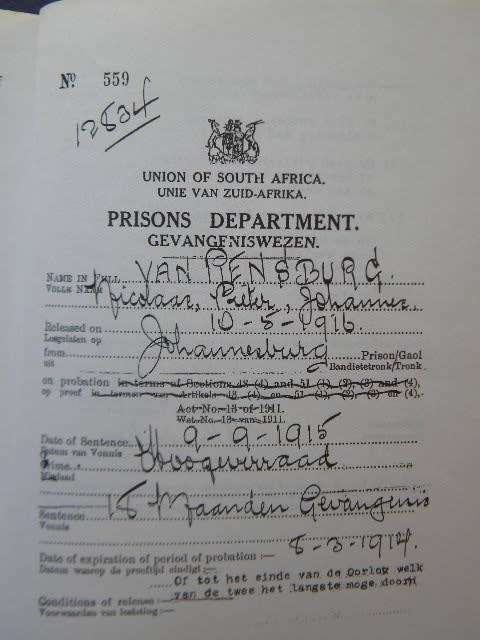 No 559
12804
UNION OF SOUTH AFRICA.
UNIE VAN ZUID-AFRIKA.
PRISONS DEPARTMENT.
GEVANGENISWEZEN.
NAME IN FULL VAN RENSBURG.
VOLLE NAAM Nicolaas, Pieter, Johannes.
Released on 10-5-1916
Losgelaten op
from Johannesburg Prison/Gaol
uit Bandietetronk/Tronk.
on probation in terms of Sections 48 (4) and 51 (1), (2), (3) and (4),
op proef in termen van Artikels 48 (4) en 51 (1), (2), (3) en (4),
Act No. 13 of 1911.
Wet No. 13 van 1911.
Date of Sentence 9-9-1915
Datum van Vonnis
Crime Hoogverraad
Misdaad
Sentence 18 Maanden Gevangenis
Vonnis
Date of expiration of period of probation:— 8-3-1917.
Datum waarop de proeftijd eindigt:—
Of tot het einde van de Oorlog welk
Conditions of release:— van de twee het langste moge doorn
Voorwaarden van loslating:—